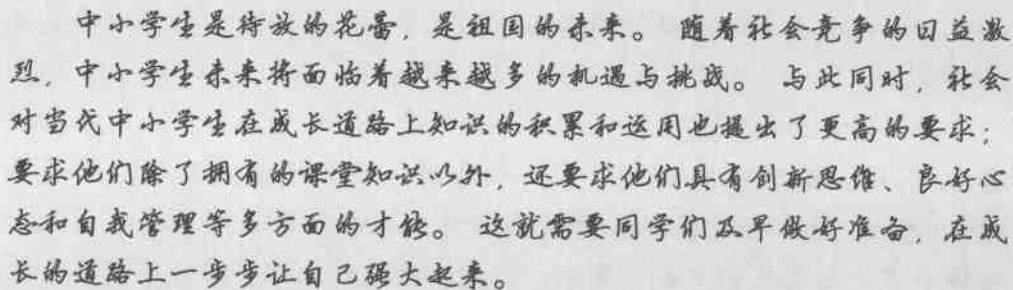 中小学生是待放的花蕾，是祖国的未来。随着社会竞争的日益激
烈，中小学生未来将面临着越来越多的机遇与挑战。与此同时，社会
对当代中小学生在成长道路上知识的积累和运用也提出了更高的要求；
要求他们除了拥有的课堂知识以外，还要求他们具有创新思维、良好心
态和自我管理等多方面的才能。这就需要同学们及早做好准备，在成
长的道路上一步步让自己强大起来。